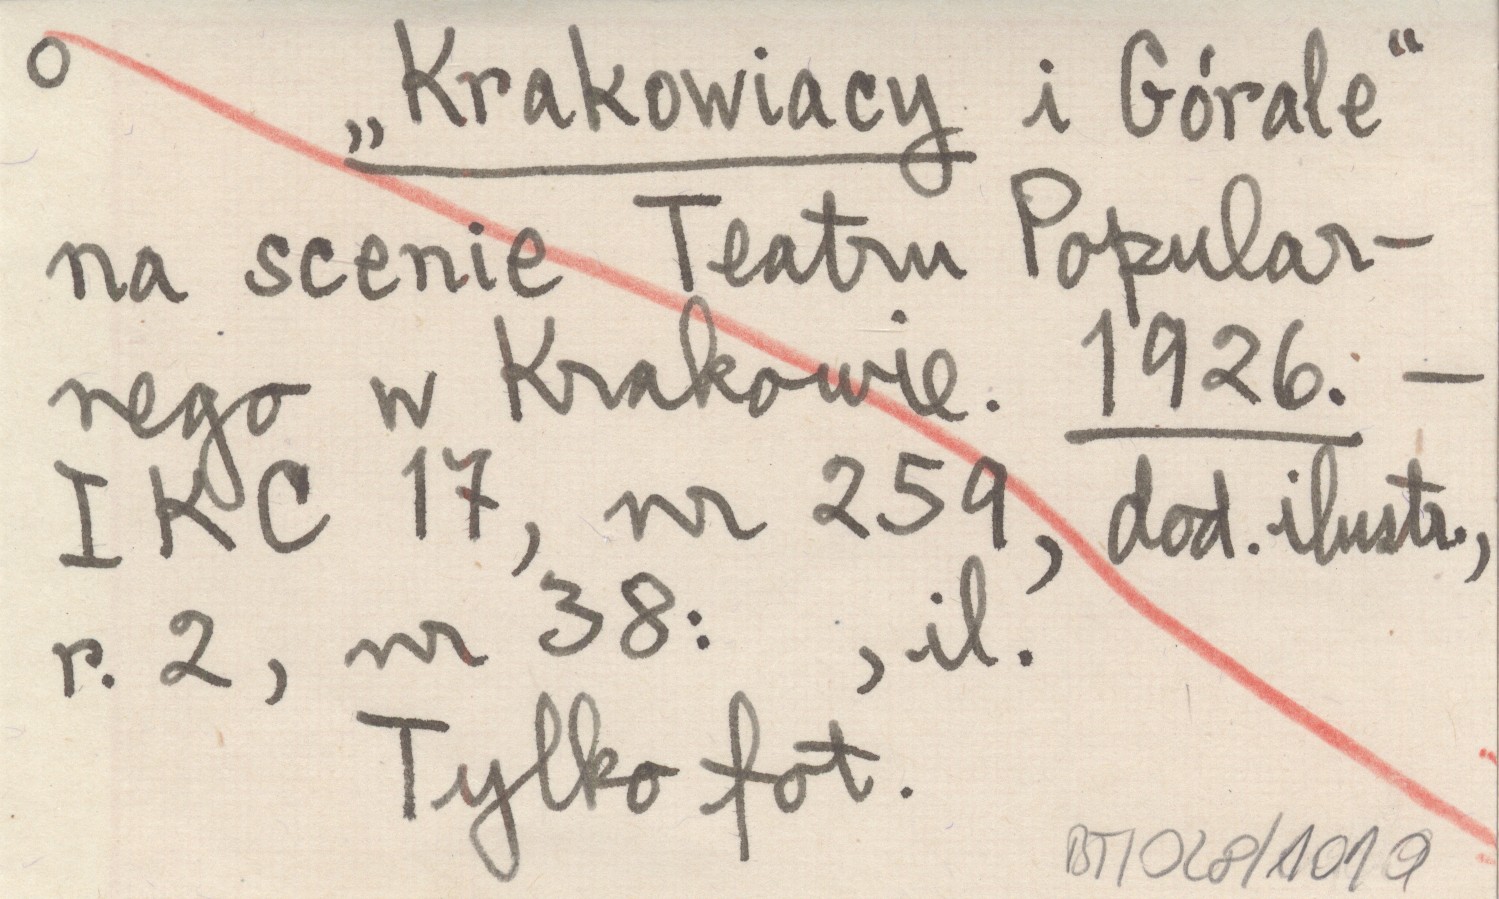 o
„Krakowiacy i Górale“
na scenie Teatru Popular-
nego w Krakowie. 1926. —
IKC 17, nr 259, dod. ilustr.,
r. 2, nr 38: , il.
Tylko fot.
BT/028/1019